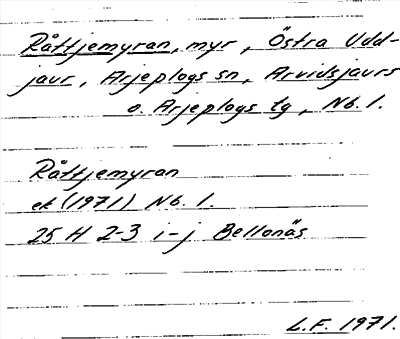 Råttjemyran, myr, Östra Udd-
jaur, Arjeplogs sn, Arvidsjaurs
o. Arjeplogs tg, Nb. l.
Råttjemyran
ek (1971) Nb. l.
25 H 2-3 i-j Bellonäs
L.F. 1971.